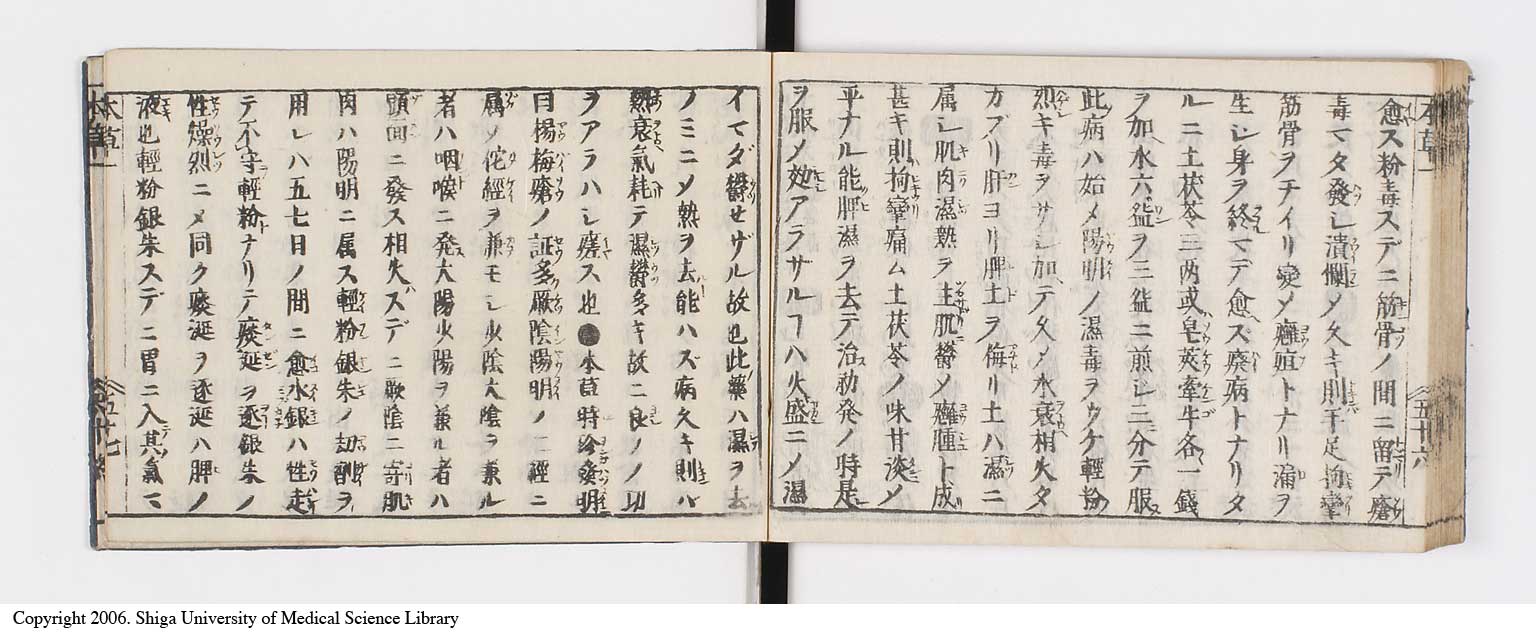 本草一
五十六
愈ス粉毒スデニ筋骨ノ間ニ留テ瘡
毒マタ發シ潰爛メ久キ則手足拘攣
筋骨ヲチイリ變メ癰疽トナリ漏ヲ
生シ身ヲ終マデ愈ズ癈病トナリタ
ルニ土茯苓三两或皂莢牽牛各一錢
ヲ加水六盌ヲ三盌ニ煎シ二分テ服
此病ハ始メ陽明ノ濕毒ヲウケ輕粉
烈キ毒ヲサシ加ヘテ久メ水衰相火タ
カブリ肝ヨリ脾土ヲ侮リ土ハ濕ニ
属シ肌肉濕熱ヲ主肌欝メ癰腫ト成
甚キ則拘攣痛ム土茯苓ノ味甘淡メ
平ナル能脾濕ヲ去テ治劫発ノ時是
ヲ服メ効アラサルヿハ火盛ニメ濕
イマダ欝セザル故也此藥ハ濕ヲ去
ノミニメ熱ヲ去能ハズ病久キ則ハ
熱衰氣耗テ濕欝多キ故ニ良メノ功
ヲアラハシ瘥ス也●本草時珍發明
曰楊梅瘡ノ証多厥陰陽明ノ二經ニ
属メ佗經ヲ兼モシ少陰太陰ヲ兼ル
者ハ咽喉ニ発太陽少陽ヲ兼ル者ハ
頭面ニ發ス相火スデニ厥陰ニ寄肌
肉ハ陽明ニ属ス輕粉銀朱ノ劫劑ヲ
用レハ五七日ノ間ニ愈水銀ハ性走
テ不守輕粉トナリテ痰涎ヲ逐銀朱ノ
性燥烈ニメ同ク痰涎ヲ逐涎ハ脾ノ
液也輕粉銀朱スデニ胃ニ入其氣マ
本草一
五十七
Copyright 2006. Shiga University of Medical Science Library